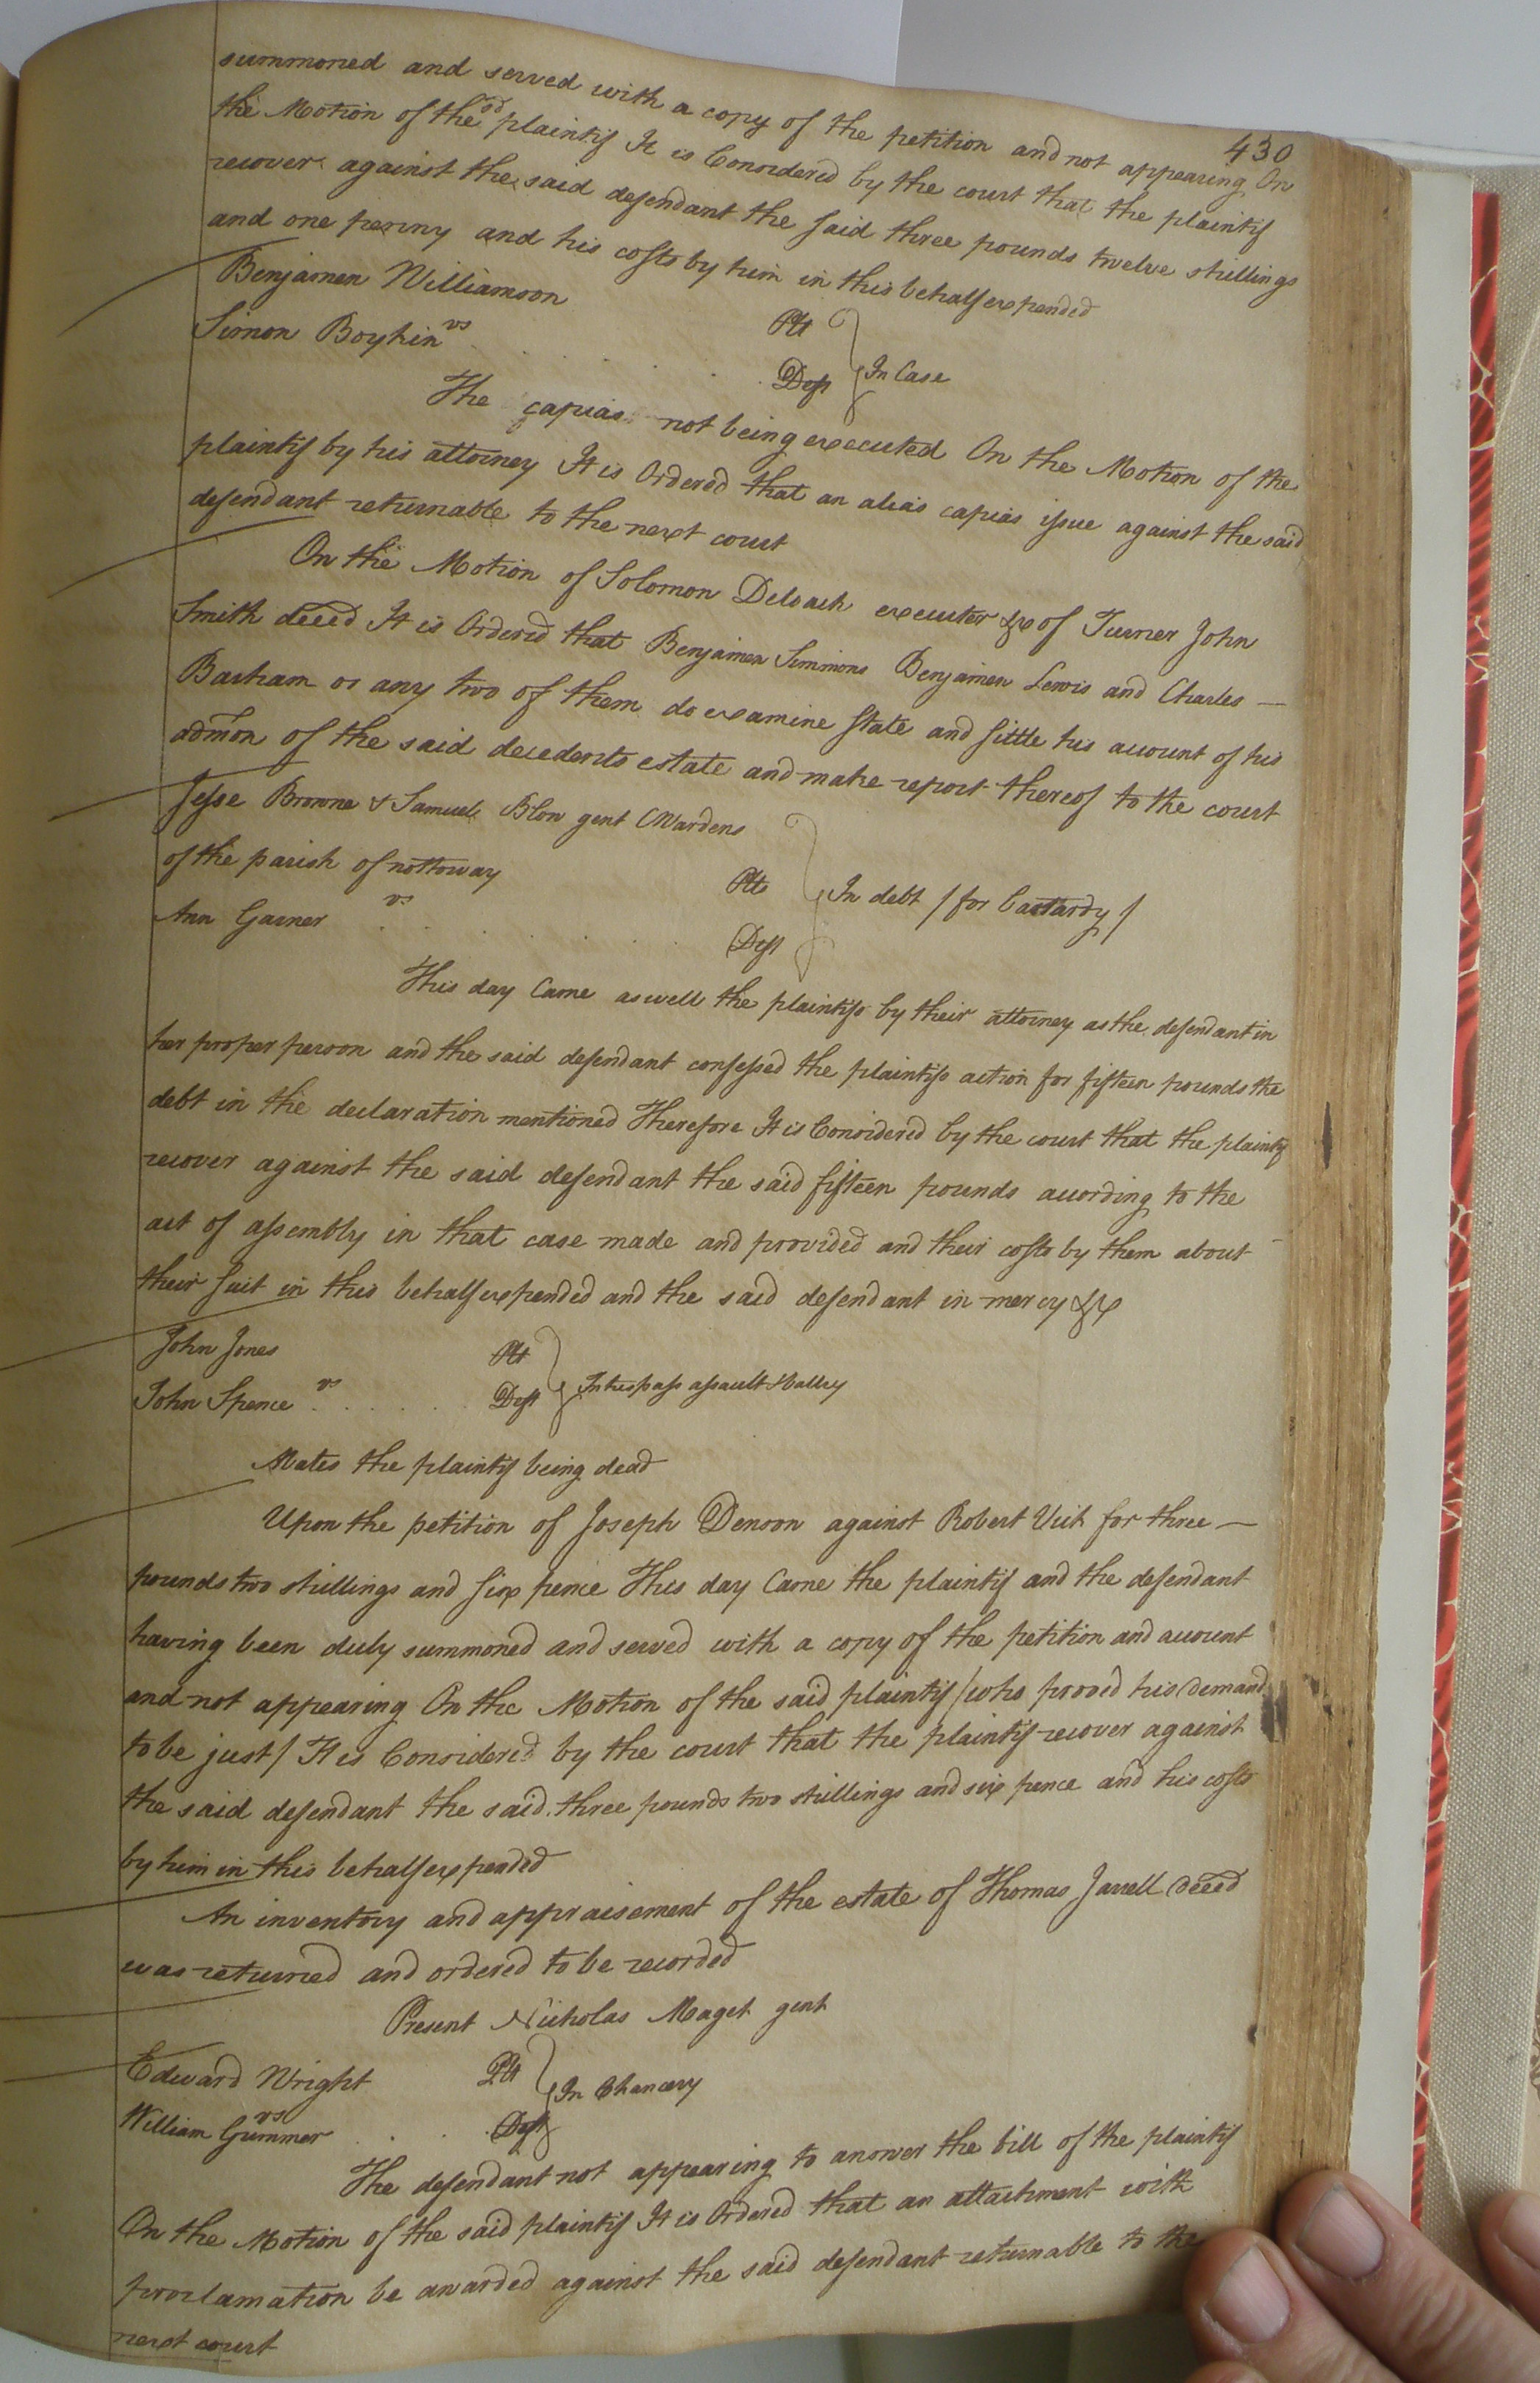 430
summoned and served with a copy of the petition and not appearing On
the Motion of the sd plaintif It is Considered by the court that the plaintif
recover against the said defendant the said three pounds twelve shillings
and one penny and his costs by him in this behalf expended
Benjamen Williamson Plt
vs
Simon Boykin Deft In Case
The capias not being executed On the Motion of the
plaintif by his attorney It is Ordered that an alias capias issue against the said
defendant returnable to the next court
On the Motion of Solomon Deloach executer &c of Turner John
Smith deced It is Ordered that Benjamen Simmons Benjamen Lewis and Charles —
Barham or any two of them do examine state and sittle his account of his
admon of the said decedents estate and make report thereof to the court
Jesse Browne & Samuel Blow gent CWardens
of the parish of nottoway Plts In debt / for bastardy /
vs
Ann Garner Deft
This day Came aswell the plaintifs by their attorney as the defendant in
her proper person and the said defendant confessed the plaintifs action for fifteen pounds the
debt in the declaration mentioned Therefore It is Considered by the court that the plaintif
recover against the said defendant the said fifteen pounds according to the
act of assembly in that case made and provided and their costs by them about
their suit in this behalf expended and the said defendant in mercy &c
John Jones Plt
vs In trespass assault &
John Spence Deft
Abates the plaintif being dead
Upon the petition of Joseph Denson against Robert Vick for three —
pounds two shillings and six pence This day Came the plaintif and the defendant
having been duly summoned and served with a copy of the petition and account
and not appearing On the Motion of the said plaintif / who proved his demand
to be just / It is Considered by the court that the plaintif recover against
the said defendant the said three pounds two shillings and six pence and his costs
by him in this behalf expended
An inventory and appraisement of the estate of Thomas Jarrell deced
was returned and ordered to be recorded
Present Nicholas Maget gent
Edward Wright Plt
vs In Chancery
William Gummer Deft
The defendant not appearing to answer the bill of the plaintif
On the Motion of the said plaintif It is Ordered that an attachment with
proclamation be awarded against the said defendant returnable to the
next court